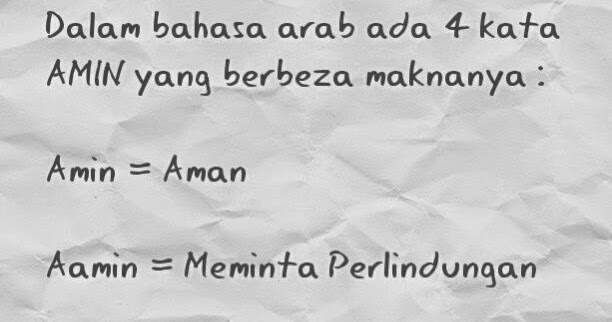 Dalam bahasa arab ada 4 kata
AMIN yang berbeza maknanya :
Amin = Aman
Aamin = Meminta Perlindungan